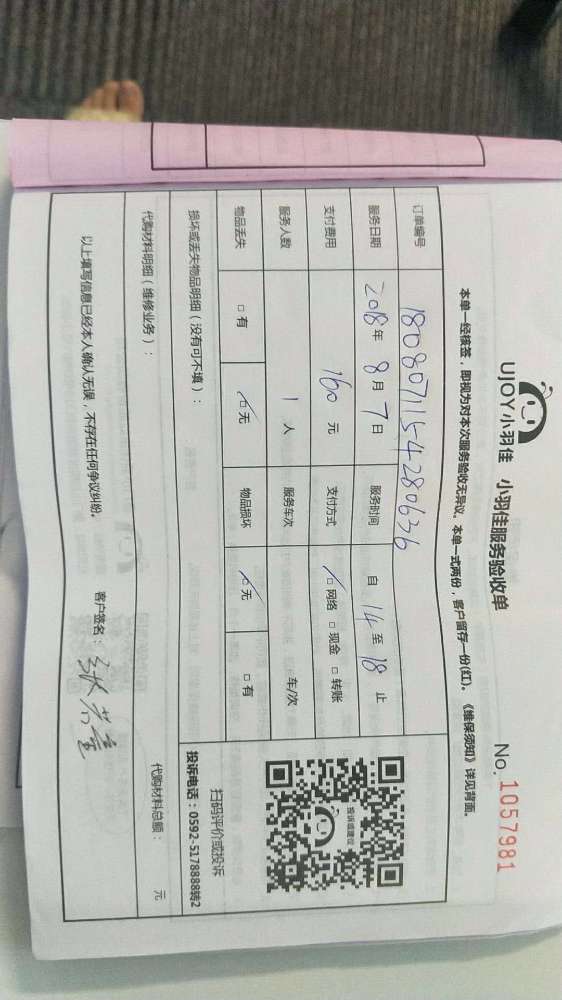 UJOY小羽佳 小羽佳服务验收单
No. 1057981
本单一经核签，即视为对本次服务验收无异议。本单一式两份，客户留存一份(红)。《维保须知》详见背面。
订单编号 1808071154280636
服务日期 2018年 8月 7日 服务时间 自 14 至 18 止
支付费用 160 元 支付方式 ☑网络 □现金 □转账
服务人数 1 人 服务车次 车/次
物品丢失 □有 ☑无 物品损坏 ☑无 □有
损坏或丢失物品明细（没有可不填）：
投诉或建议
扫码评价或投诉
投诉电话：0592-5178888转2
代购材料明细（维修业务）：
代购材料总额： 元
以上填写信息已经本人确认无误，不存在任何争议纠纷。
客户签名：张